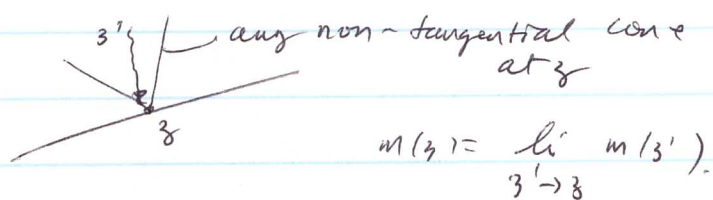 z' any non-tangential cone
at z
z
m(z) = li m(z').
z'→z